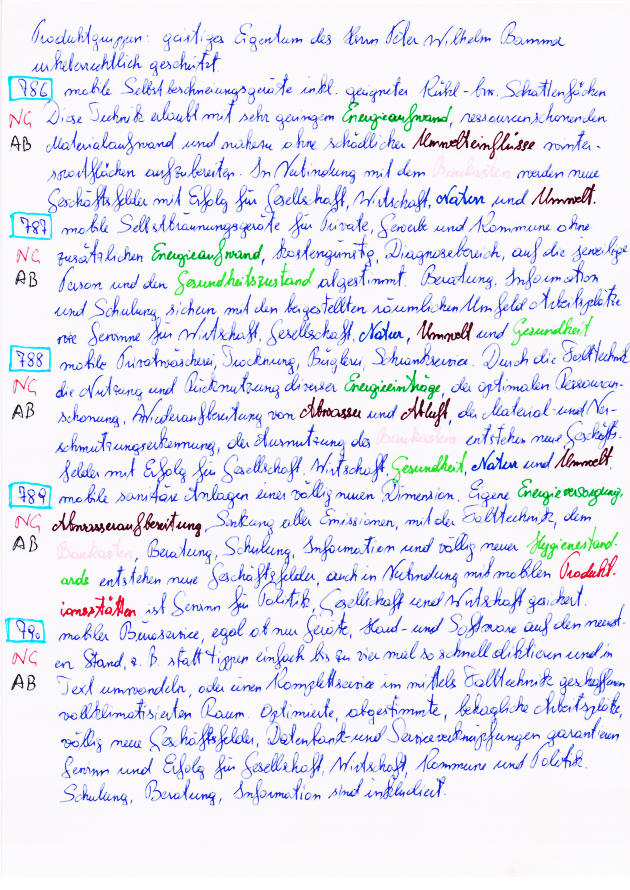 Produktgruppen: geistiges Eigentum des Herrn Peter Wilhelm Bamma
urheberrechtlich geschützt.
786 mobile Selbstbeschneiungsgeräte inkl. geeigneter Kühl- bzw. Schattenflächen
NG Diese Technik erlaubt mit sehr geringem Energieaufwand, ressourcenschonenden
AB Materialaufwand und nahezu ohne schädlicher Umwelteinflüsse winter-
sportflächen aufzubereiten. In Verbindung mit dem Baukasten werden neue
Geschäftsfelder mit Erfolg für Gesellschaft, Wirtschaft, Natur und Umwelt.
787 mobile Selbstbräunungsgeräte für Private, Gewerbe und Kommune ohne
NG zusätzlichen Energieaufwand, kostengünstig, Diagnosebereich, auf die jeweilige
AB Person und den Gesundheitszustand abgestimmt. Beratung, Information
und Schulung sichern mit den bereitgestellten räumlichen Umfeld Arbeitsplätze
wie Gewinne für Wirtschaft, Gesellschaft, Natur, Umwelt und Gesundheit
788 mobile Privatwäscherei, Trocknung, Büglerei, Schrankservice. Durch die Falttechnik
NG die Nutzung und Rücknutzung diverser Energieeinträge, der optimalen Ressourcen-
AB schonung, Wiederaufbereitung von Abwasser und Abluft, der Material- und Ver-
schmutzungserkennung, der Ausnutzung des Baukastens entstehen neue Geschäfts-
felder mit Erfolg für Gesellschaft, Wirtschaft, Gesundheit, Natur und Umwelt.
789 mobile sanitäre Anlagen einer völlig neuen Dimension. Eigene Energieversorgung,
NG Abwasseraufbereitung, Senkung aller Emissionen, mit der Falttechnik, dem
AB Baukasten, Beratung, Schulung, Information und völlig neuer Hygienestand-
ards entstehen neue Geschäftsfelder, auch in Verbindung mit mobilen Produkt-
ionsstätten ist Gewinn für Politik, Gesellschaft und Wirtschaft gesichert.
790 mobiler Büroservice, egal ob nur Geräte, Hard- und Software auf den neuest-
NG en Stand, z. B. statt tippen einfach bis zu vier mal so schnell diktieren und in
AB Text umwandeln, oder einen Komplettservice im mittels Falttechnik geschaffenen
vollklimatisierten Raum. Optimierte, abgestimmte, behagliche Arbeitsplätze,
völlig neue Geschäftsfelder, Datenbank- und Serviceverknüpfungen garantieren
Gewinn und Erfolg für Gesellschaft, Wirtschaft, Kommune und Politik.
Schulung, Beratung, Information sind inkludiert.